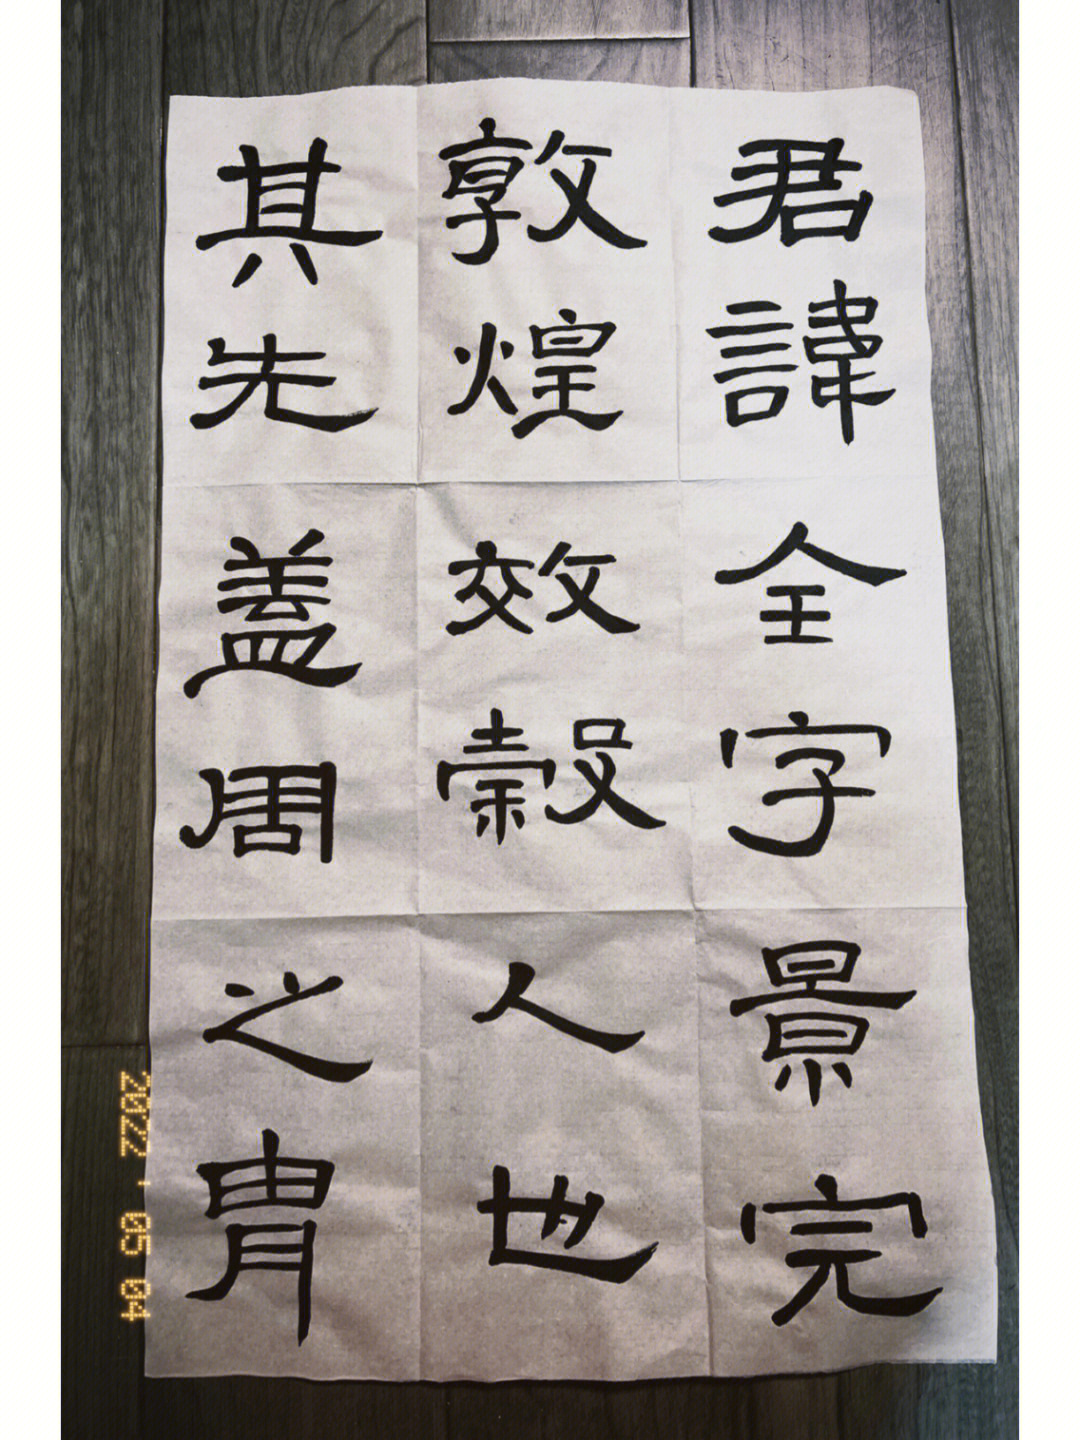 君諱全字景完
敦煌效穀人也
其先盖周之胄
2022 . 05 04